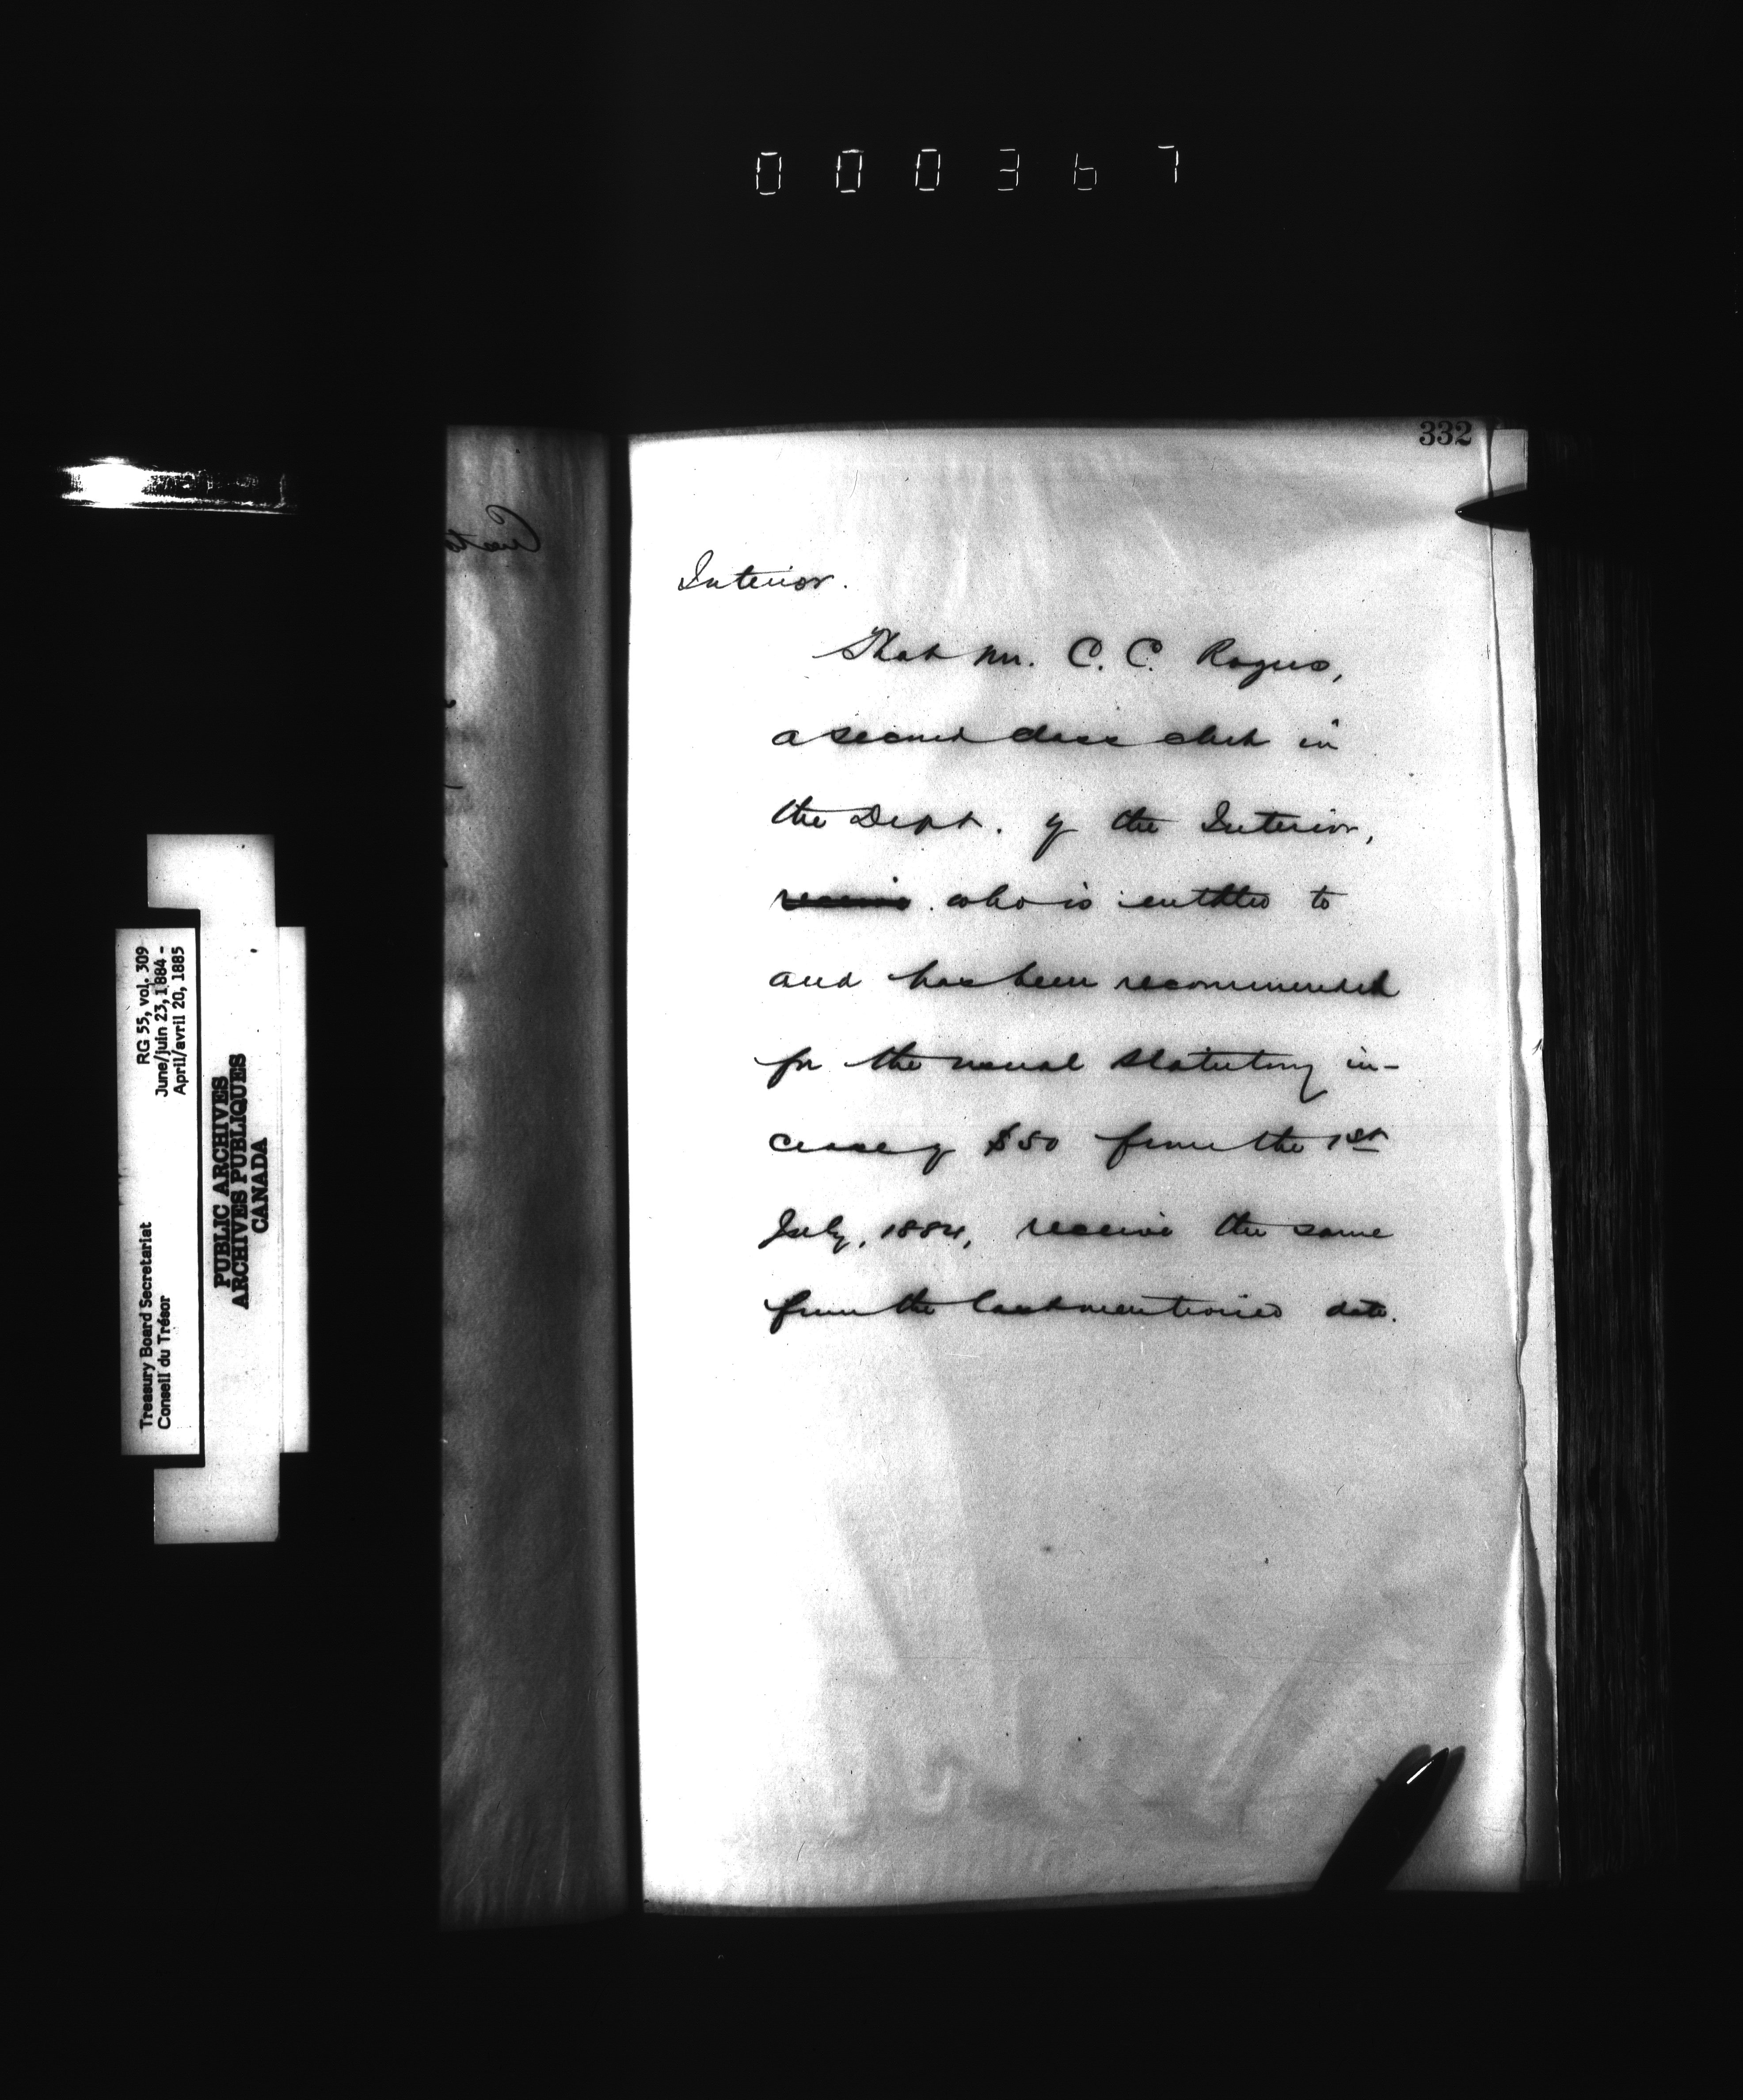 000367
332
Interior.
That Mr. C. C. Rogers,
a second class clerk in
the Dept. of the Interior,
receive who is entitled to
and has been recommended
for the usual statutory in-
crease of $50 from the 1st
July, 1884, receive the same
from the last mentioned date.
RG 55, vol. 309
June/juin 23, 1884 -
April/avril 20, 1885
Treasury Board Secretariat
Conseil du Trésor
PUBLIC ARCHIVES
ARCHIVES PUBLIQUES
CANADA